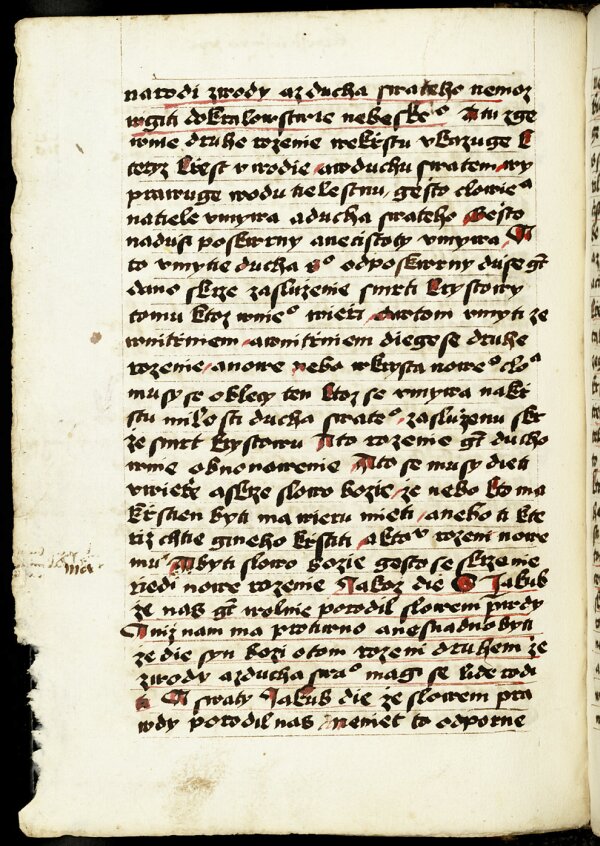 narodi zwody azducha swateho nemoz
wgiti dokralowstwie nebeske° A tu zge
wnie druhe rozenie wekrstu vkazuge
krzest vwodie awduchu swatem
prawuge wodu tielestnu, gesto clowie
natiele vmywa aducha swateho Gesto
nadusi poskwrny anecistoty vmywa
to vmytie ducha s° odposkwrny duse gt
dano skrze zasluzenie smrti krystowy
tomu ktoz wnie° wierzi Owtom vmyti ze
wnitrniem awnitrniem diegese druhe
rozenie anowe nebo wkrysta nowe° clo
musy se oblecy ten ktoz se vmywa nakr
stu milosti ducha swate° zasluzenu skr
ze smrt krystowu A to rozenie gt ducho
wnie obnonowenie A to se musy dieti
vwierze askrze slowo bozie ze nebo kto ma
krstien byti ma wieru mieti anebo ti kte
riz chtie gineho krstiti aktoz rozeni nowe
mu Abyti slowo bozie gesto se skrze nie
riedi nowe rozenie Jakoz die S Jakub
ze nas gt wolnie porodil slowem prawdy
A niz nam ma protiwno anesnadno byti
ze die syn bozi otom rozeni druhem ze
zwody azducha swa° magi se lide rodi
A S swaty Jakub die ze slowem pra
wdy porodil nas nemiet to odporne